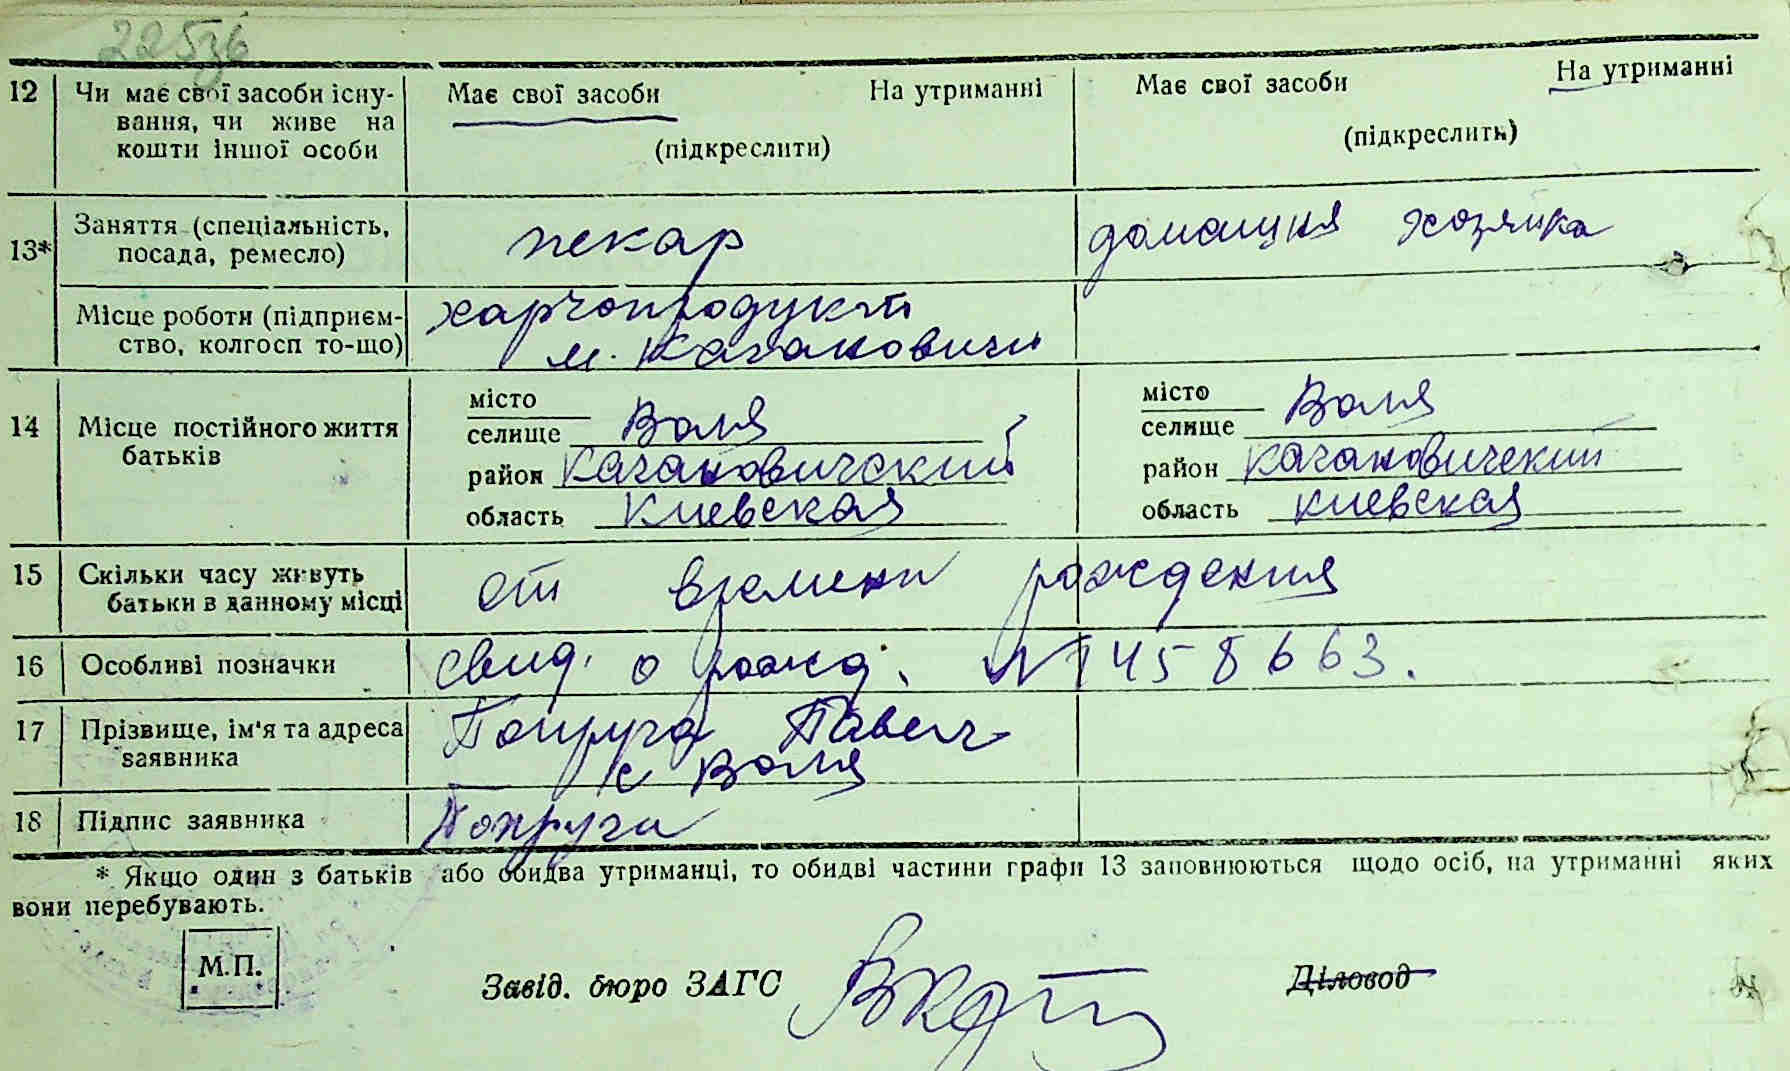 22536
12 Чи має свої засоби існу- Має свої засоби На утриманні Має свої засоби На утриманні
вання, чи живе на
кошти іншої особи (підкреслити) (підкреслить)
13* Заняття (спеціальність, пекар домашня хозяйка
посада, ремесло)
Місце роботи (підприєм- харчопродукт
ство, колгосп то-що) м. Кагановичи
14 Місце постійного життя місто місто
батьків селище Воля селище Воля
район Кагановичский район Кагановичский
область Киевская область Киевская
15 Скільки часу живуть от времени рождения
батьки в данному місці
16 Особливі позначки свид. о рожд. № 458663.
17 Прізвище, ім'я та адреса Попруга Павел
заявника с Воля
18 Підпис заявника Попруга
* Якщо один з батьків або обидва утриманці, то обидві частини графи 13 заповнюються щодо осіб, на утриманні яких
вони перебувають.
М.П.
Завід. бюро ЗАГС Діловод